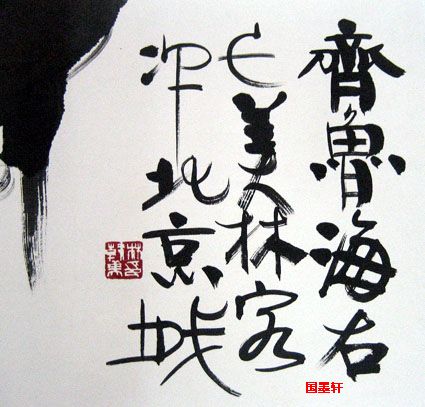 齊魯海右
美林客
北京城
国墨轩